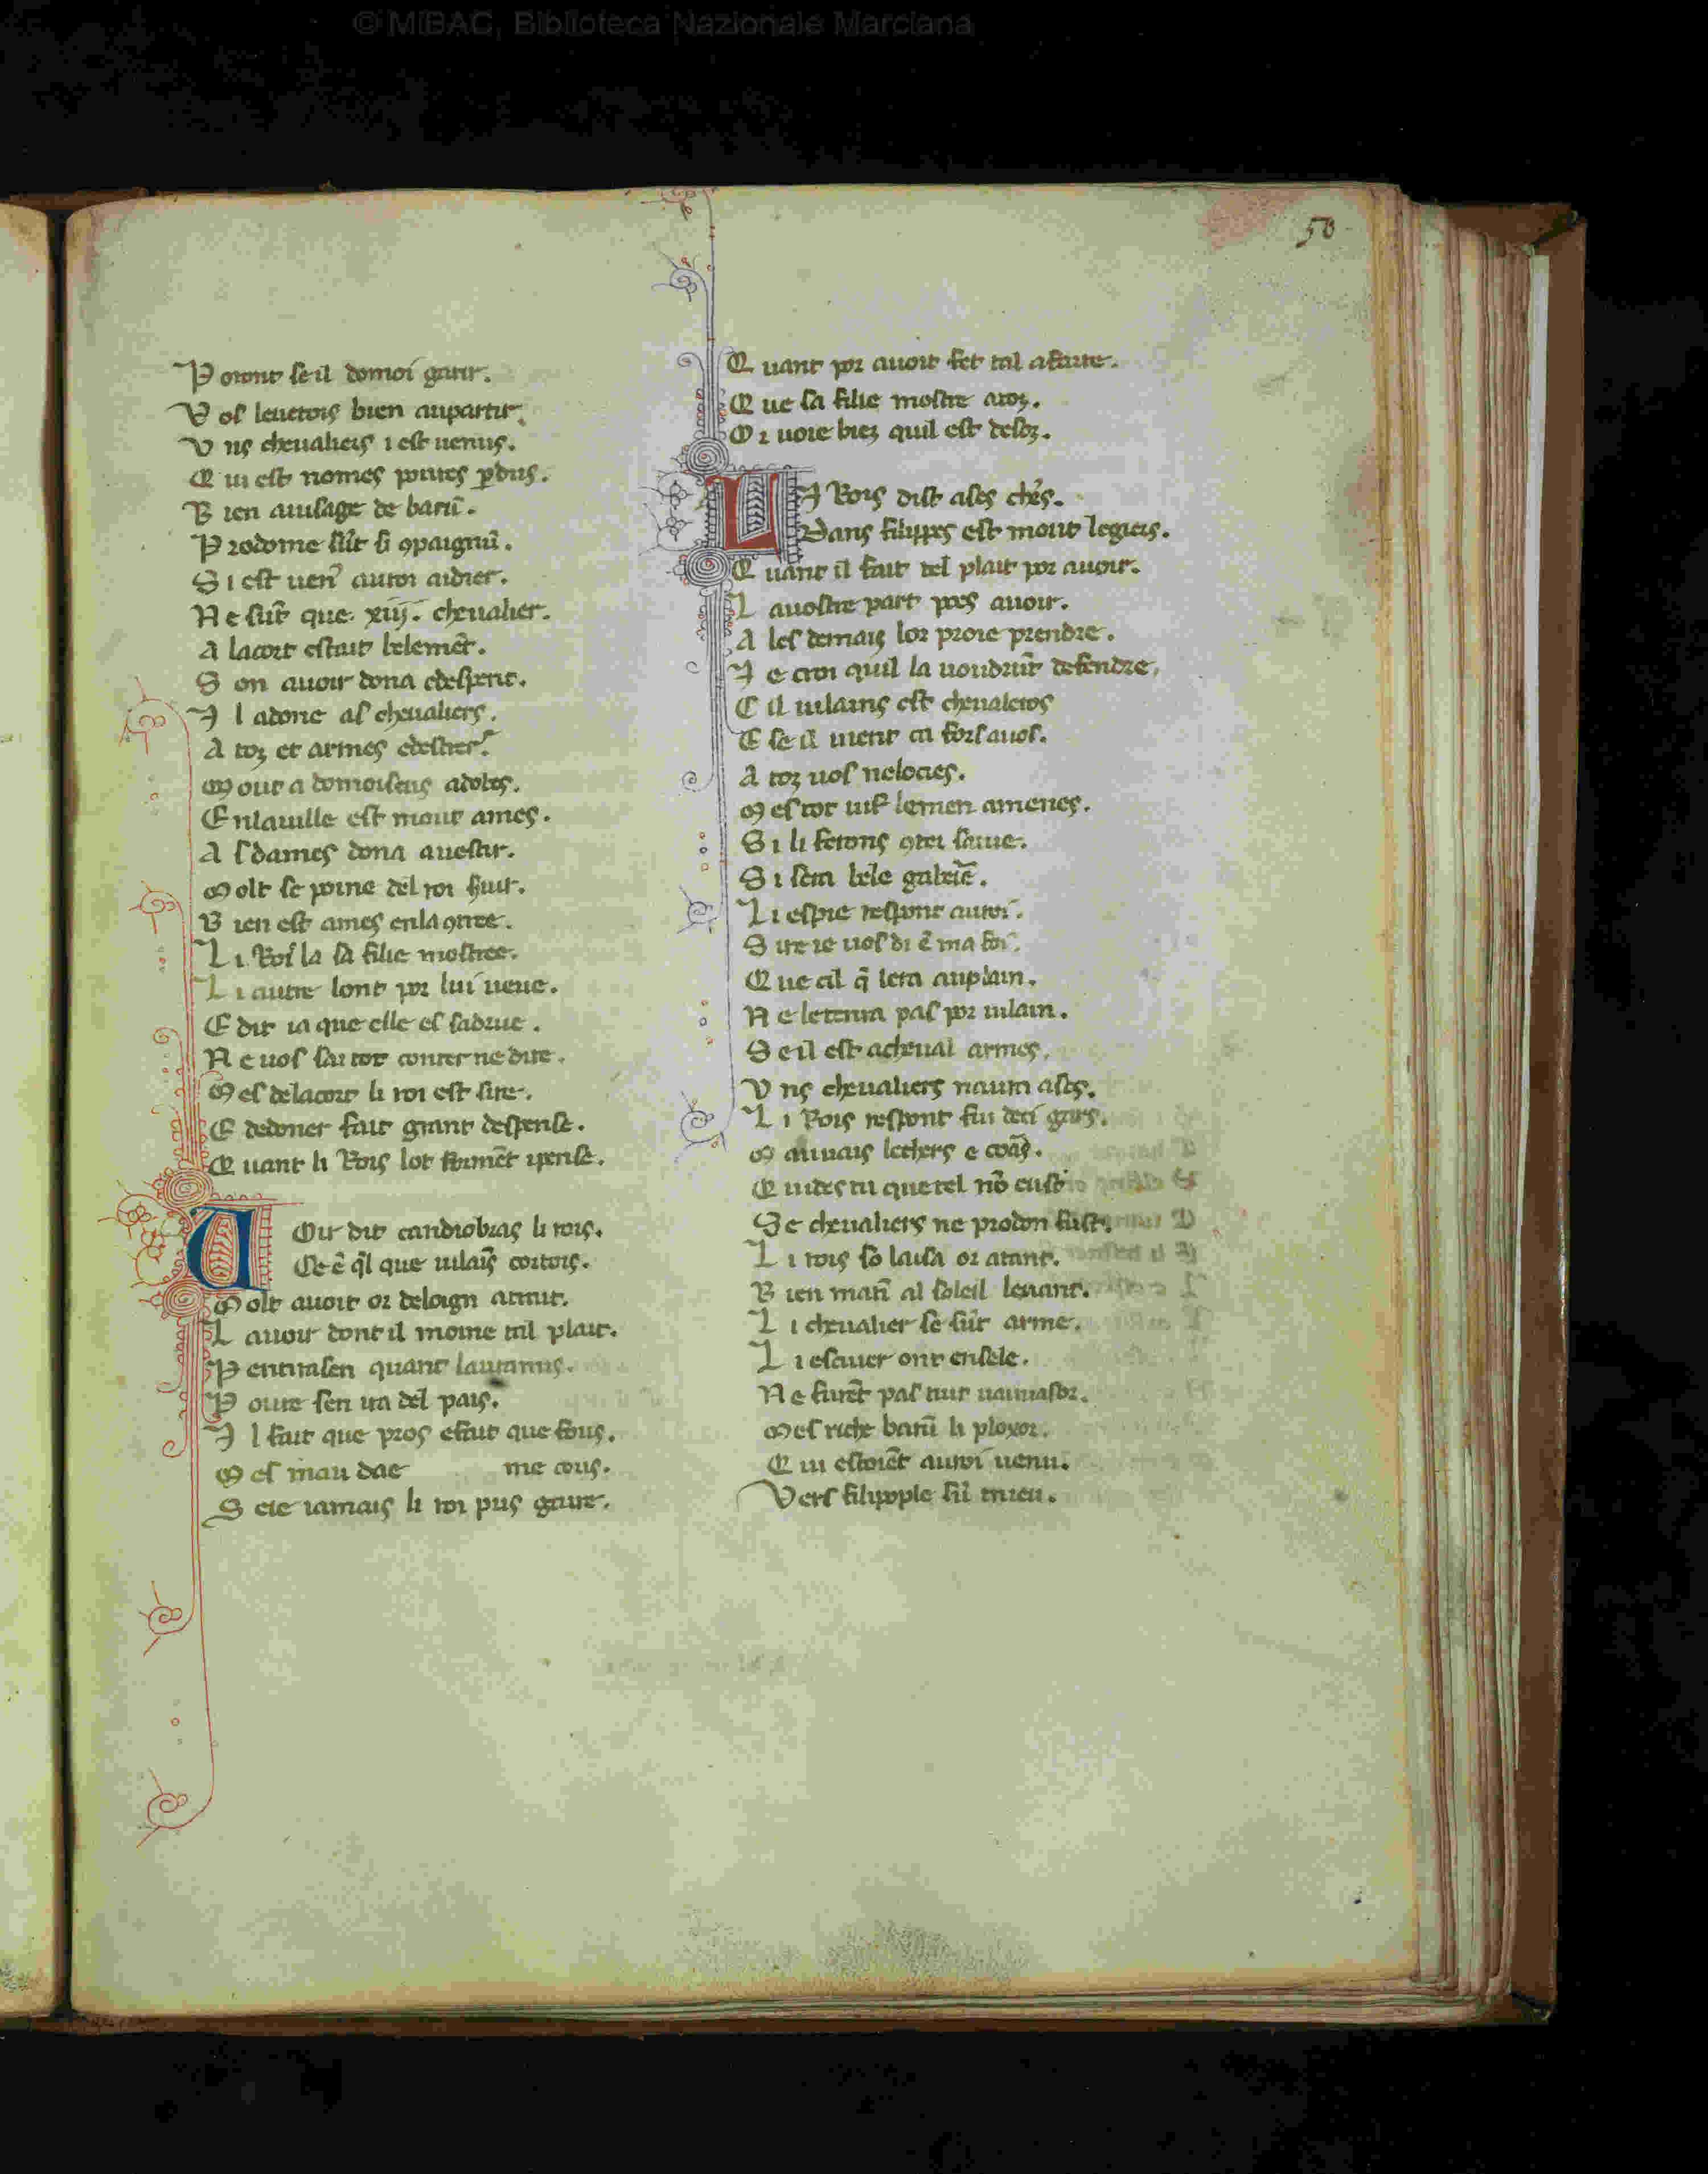 © MiBAC, Biblioteca Nazionale Marciana
50
P oront se il domoi garir.
V os leuerois bien au partir.
V ns cheualiers i est uenus.
Q ui est nomes poures pdus.
B ien a uisage de barũ.
P rodome sũt si 9paignũ.
S i est uen9 au roi aidier.
N e sũt que .xiiij. cheualier.
A la cort estait belemẽt.
S on auoir dona e despent.
I l a done as cheualiers.
A toz et armes e destrier.
M out a domoiseus adobes.
E n la uille est mout ames.
A s dames dona a uestir.
M olt se poine del roi suir.
B ien est ames en la 9tree.
L i Roi la sa filie mostree.
L i autre sont por lui ueue.
E dit ia que elle es sa drue.
N e uos sai tot conter ne dire.
M es de la cort li roi est sire.
E de doner fait grant despense.
Q uant li Rois lot formẽt ipense.
V Oir dit candiobras li rois.
Ce ẽ ql que uilaĩs cortois.
M olt auoit or de loign atrait.
L auoir dont il moine tal plait.
P entira sen quant
P oure sen ira del pais.
I l fait que pros e fait que fous.
M es mau dae me cous.
S eie iamais li roi pus gaire.
Q uant por auoir fet tal afaire.
Q ue sa filie mostre a toz.
O r uoie biez quil est desoz.
L I Rois dist ases chrs.
Dans filippes est mout legiers.
Q uant il fait tel plait por auoir.
L a uostre part poes auoir.
A les demaiz lor proie prendre.
I e croi quil la uoudrũt defendre.
C il uilains est cheualeros
E se il uient ca fors a uos.
A toz uos ne locies.
M es tot uif lemen amenes.
S i li ferons 9trei faire.
S i sera bele gaberiẽ.
L i espie respont au roi.
S ire ie uos di ẽ ma foi.
Q ue cil q̃ sera au plain.
N e le terra pas por uilain.
S e il est a cheual armes.
V ns cheualiers naura ases.
L i Rois respont fui deci gars.
M auuais lechers e coãs.
Q uides tu que tel nõ eust
Se cheualiers ne prodon fust.
L i rois so laisa or atant.
B ien matĩ al soleil leuant.
L i cheualier se sũt arme.
L i escuier ont ensele.
N e furẽt pas tuit uauuasor.
M es riche barũ li ployor.
Q ui estoiẽt au roi uenu.
Vers filipople sũt